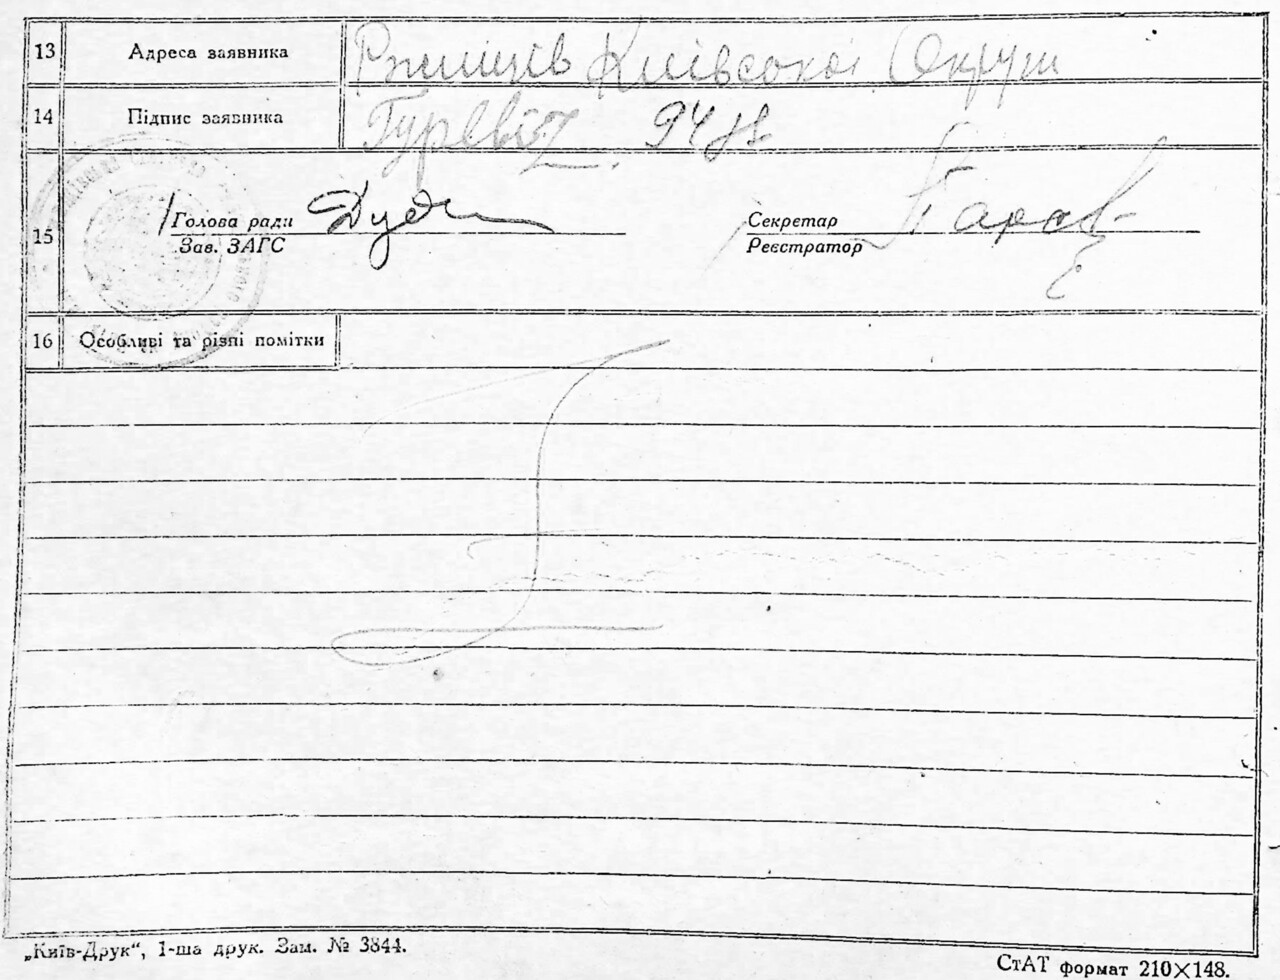 13 Адреса заявника Ржищів Київської Округи
14 Підпис заявника Гуревіч
15 Голова ради Секретар
Зав. ЗАГС Реєстратор
16 Особливі та різні помітки
„Київ-Друк“, 1-ша друк. Зам. № 3844.
СтАТ формат 210×148.